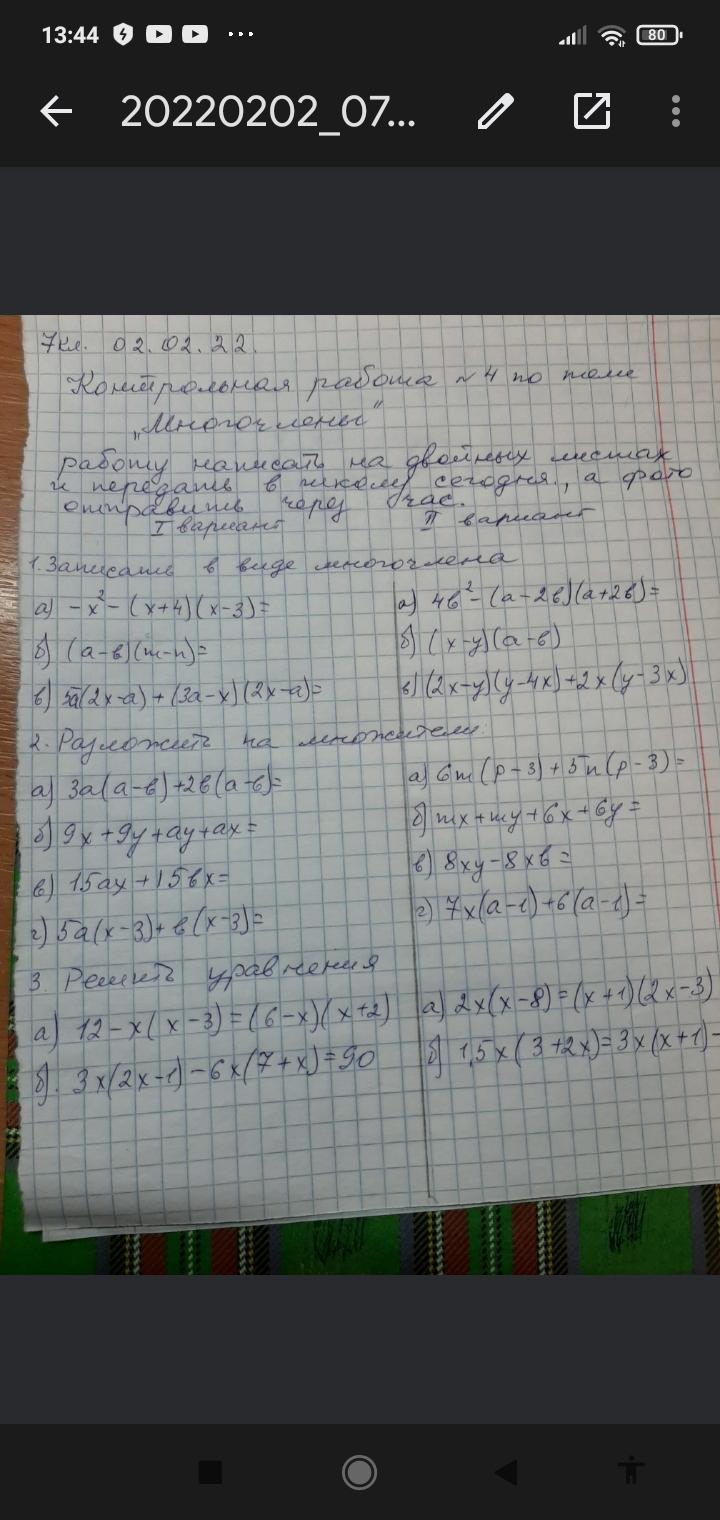 13:44
80
20220202_07...
7кл. 02.02.22.
Контрольная работа №4 по теме
„Многочлены"
работу написать на двойных листах
и передать в школу сегодня, а фото
отправить через час.
I вариант II вариант
1. Записать в виде многочлена
а) -x² - (x+4)(x-3)= а) 4в² - (а-2в)(а+2в)=
б) (а-в)(m-n)= б) (x-y)(a-в)
в) 5а(2x-a) + (3a-x)(2x-a)= в) (2x-y)(y-4x)+2x(y-3x)
2. Разложить на множители:
а) 3а(а-в)+2в(а-в)= а) 6m(p-3)+5n(p-3)=
б) 9x+9y+ay+ax= б) mx+my+6x+6y=
в) 15ax+15вx= в) 8xy-8xв=
г) 5a(x-3)+в(x-3)= г) 7x(a-1)+6(a-1)=
3. Решить уравнения
а) 12-x(x-3)=(6-x)(x+2) а) 2x(x-8)=(x+1)(2x-3)
б). 3x(2x-1)-6x(7+x)=90 б) 1,5x(3+2x)=3x(x+1)-